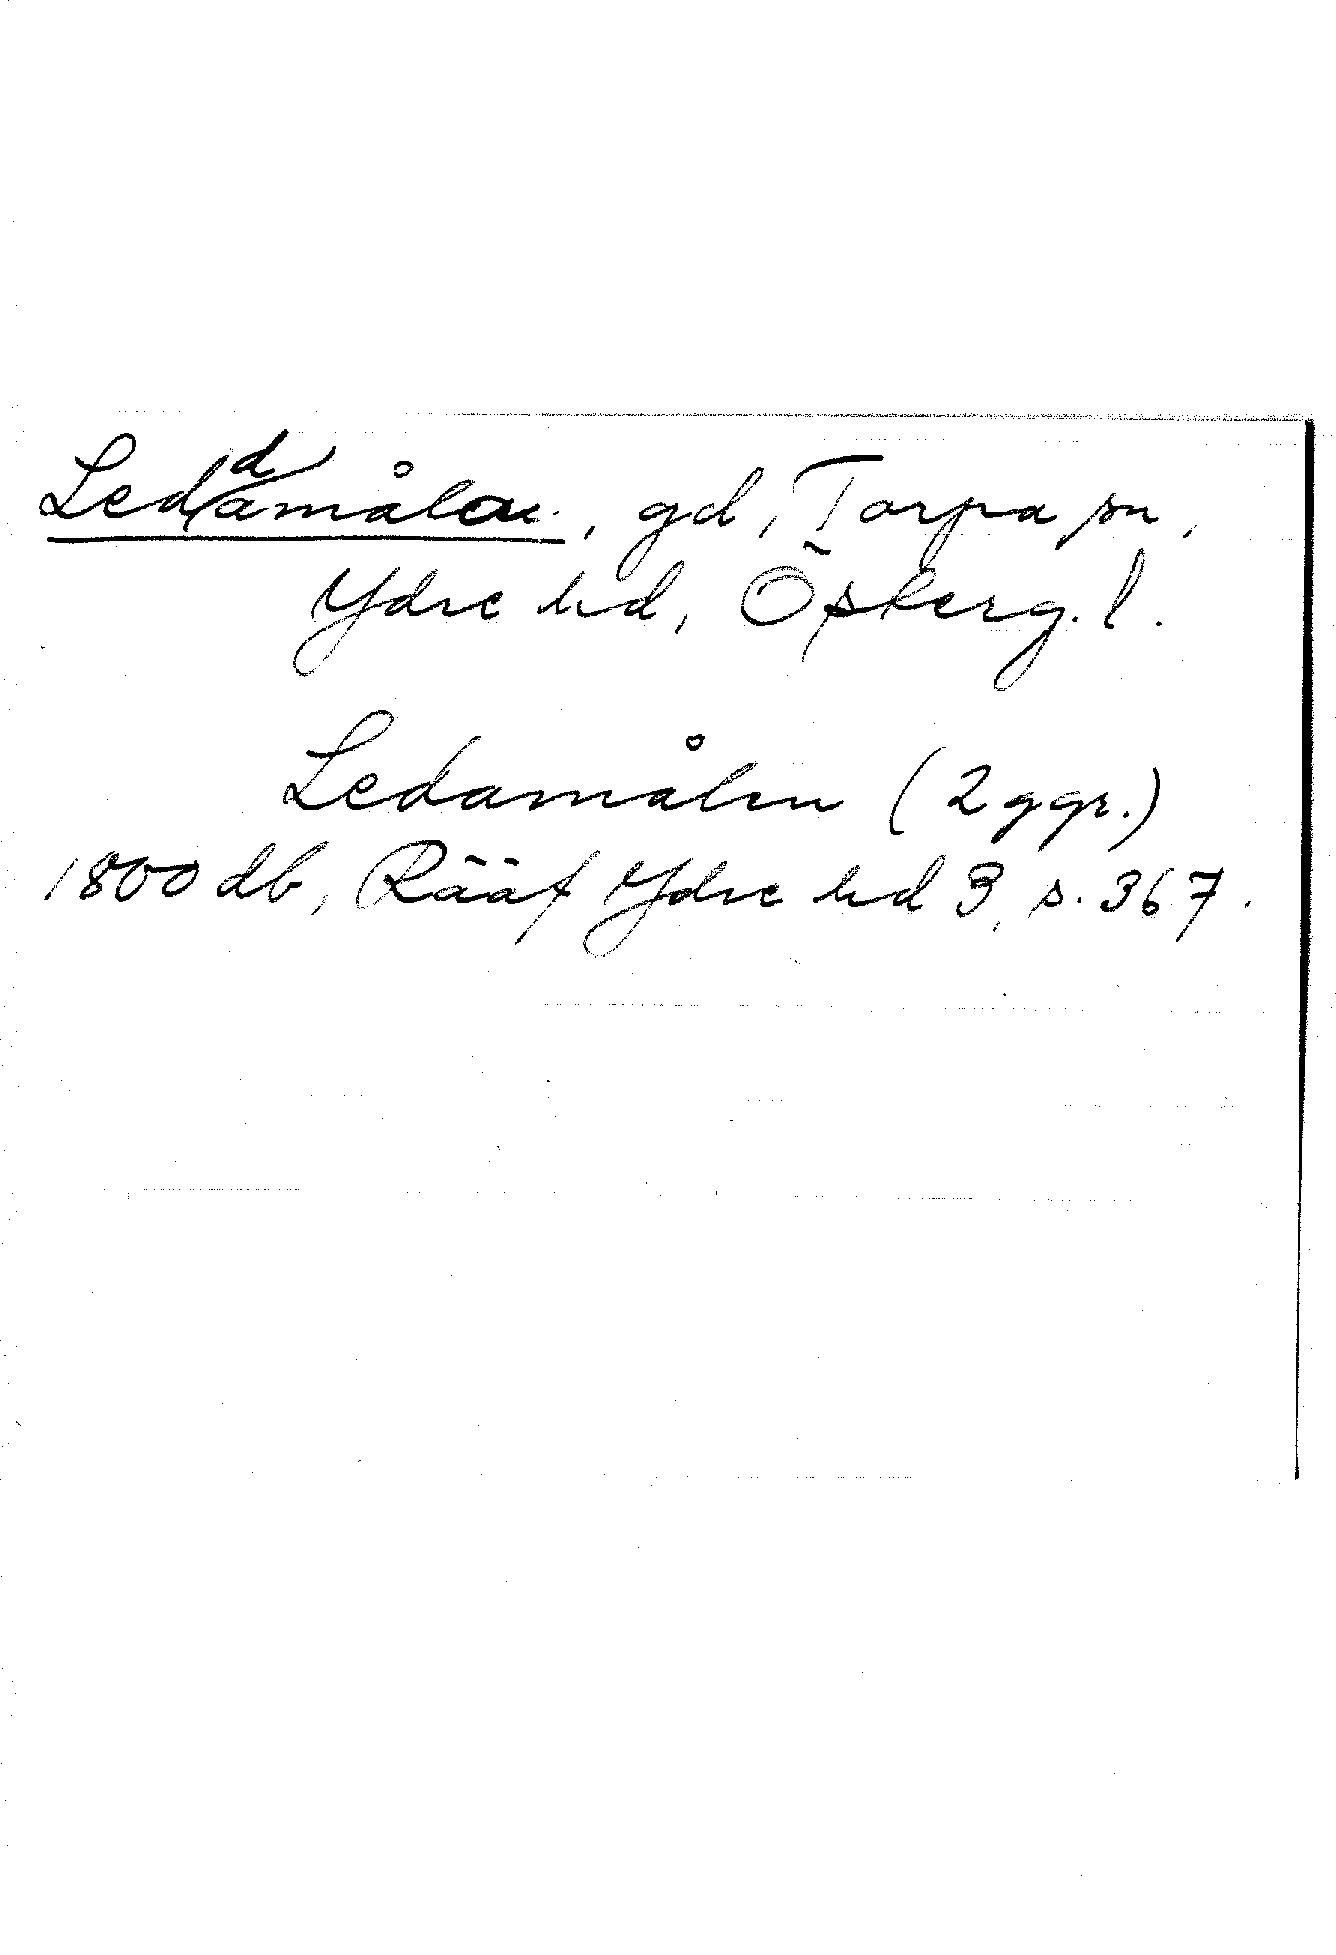 Leddamålen, gd, Torpa sn,
Ydre hd, Österg. l.
Ledamålen (2 ggr.)
1800 db, Rääf Ydre hd 3, s. 367.